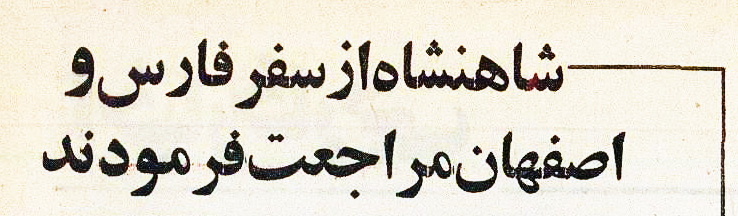 شاهنشاه از سفر فارس و
اصفهان مراجعت فرمودند